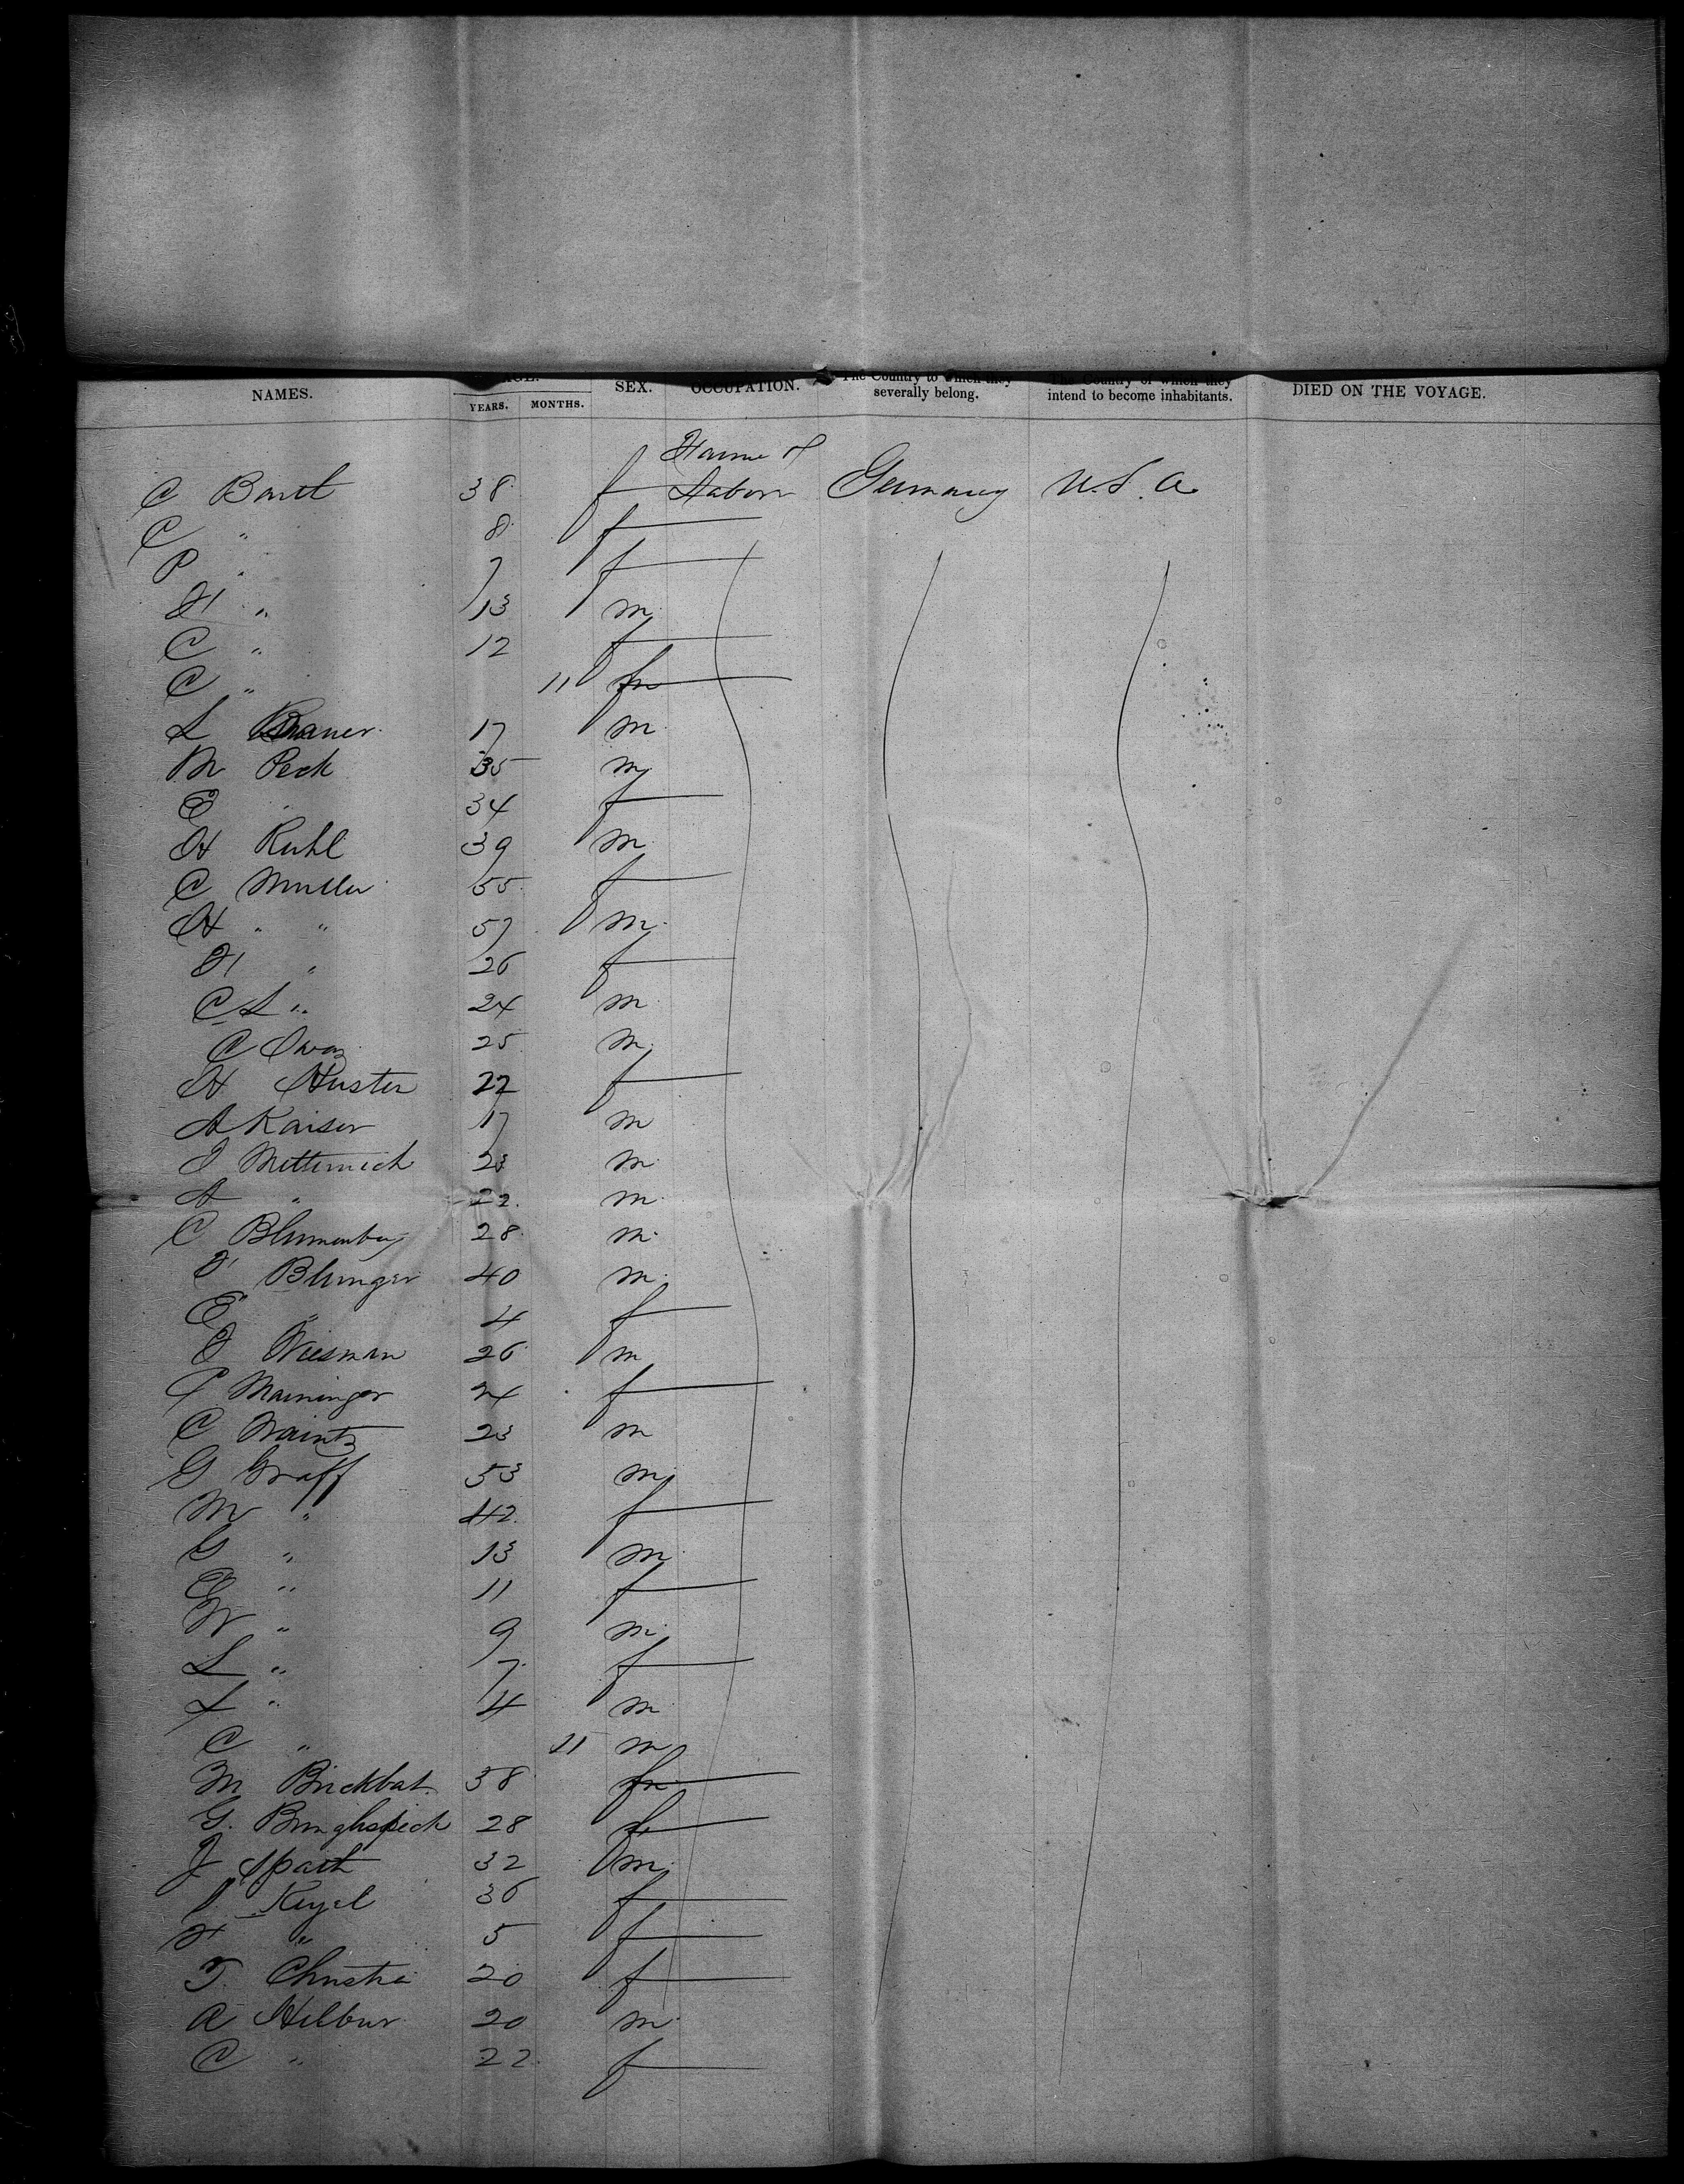 NAMES. AGE. YEARS. MONTHS. SEX. OCCUPATION. The Country to which they severally belong. The Country of which they intend to become inhabitants. DIED ON THE VOYAGE.
C 38 f Labor Germany U.S.A.
C " 8 f
P " 7 f
" 13 m
C " 12 f
C " 11
L 17 m
M Peck 35 m
E " 34 f
H Ruhl 39 m
C Muller 55 f
H " " 57 m
" 26 f
C L " 24 m
C 25 m
H 22 f
A Kaiser 17 m
J Metternich 23 m
A " 22. m
C Blumenberg 28 m
F Blunger 40 m
E " 4 f
J Wiesman 26 m
P Maininger 24 f
C Waintz 23 m
G Graff 53 m
M " 42. f
G " 13 m
E " 11 f
W " 9 m
L " 7 f
L " 4 m
C " 11 m
M Brickbat 38
G. 28 f
J Spath 32 m
Keyel 36 f
" 5 f
T. Christie 20 f
A Hilbur 20 m
C " 22. f